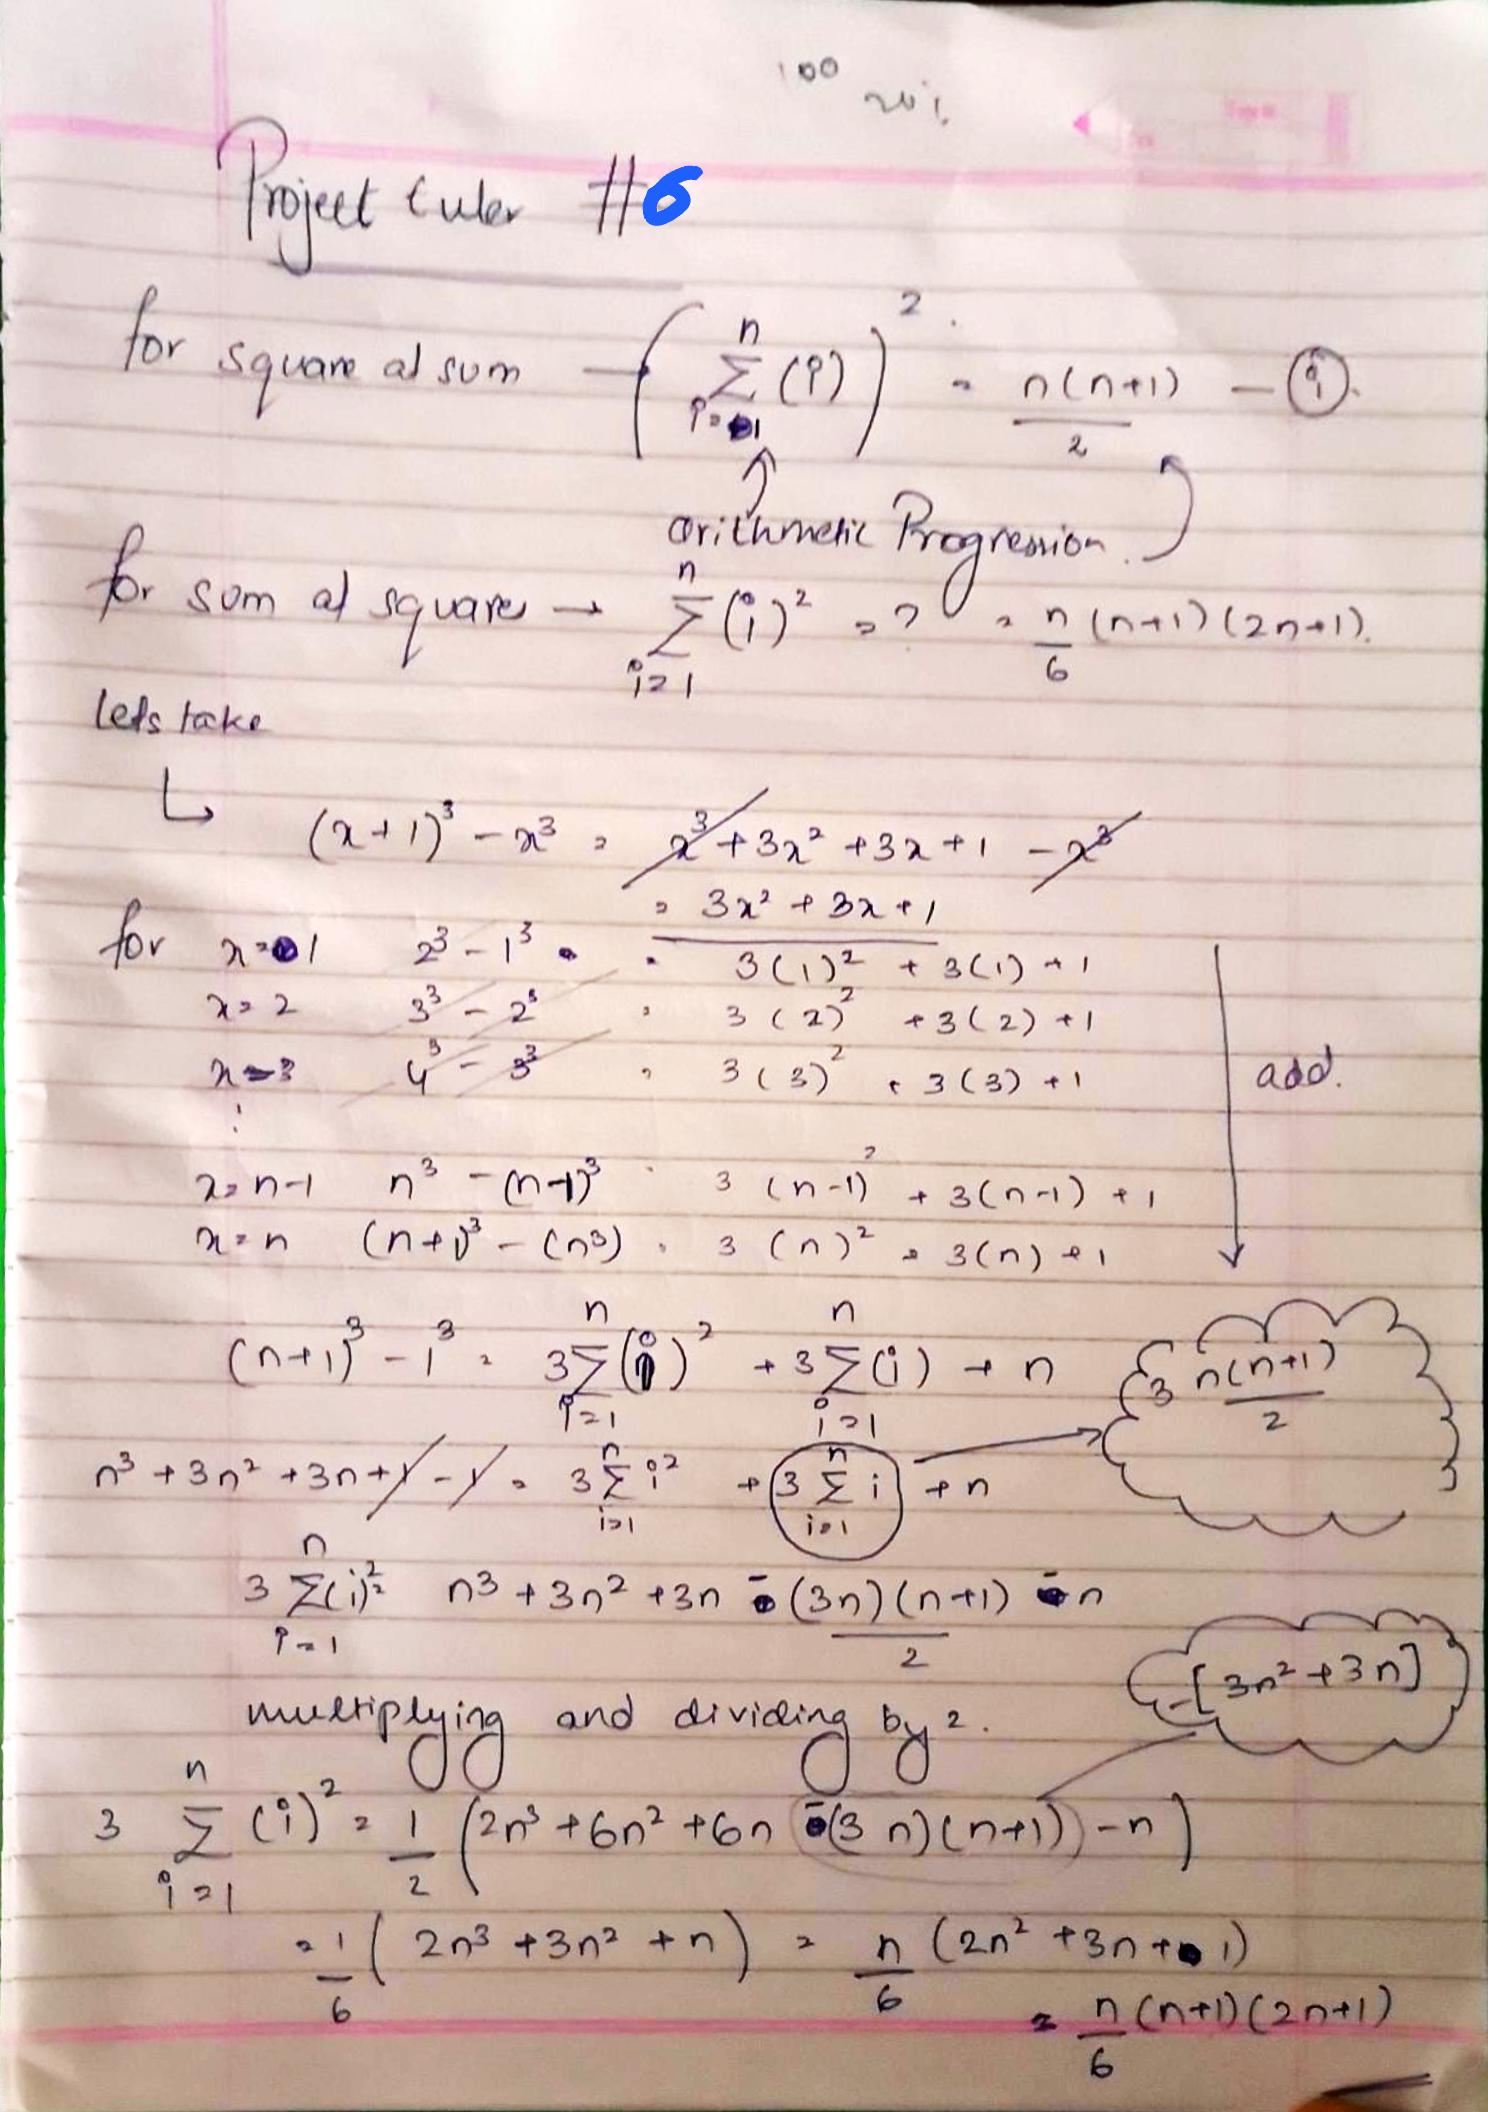 100
Project Euler #6
for square of sum → ( n Σ i=1 (i) )² = n(n+1)/2 — (i)
arithmetic Progression.
for sum of square → n Σ i=1 (i)² = ? = n/6 (n+1)(2n+1).
lets take
↳ (x+1)³ - x³ = x³ + 3x² + 3x + 1 - x³
= 3x² + 3x + 1
for x=1 2³ - 1³ = 3(1)² + 3(1) + 1
x=2 3³ - 2³ = 3(2)² + 3(2) + 1
x=3 4³ - 3³ = 3(3)² + 3(3) + 1
add.
⋮
x=n-1 n³ - (n-1)³ = 3(n-1)² + 3(n-1) + 1
x=n (n+1)³ - (n³) = 3(n)² + 3(n) + 1
(n+1)³ - 1³ = 3 n Σ i=1 (i)² + 3 n Σ i=1 (i) + n
3 n(n+1)/2
n³ + 3n² + 3n + 1 - 1 = 3 n Σ i=1 i² + 3 n Σ i=1 i + n
3 n Σ i=1 (i)² = n³ + 3n² + 3n - (3n)(n+1)/2 - n
-[3n² + 3n]
multiplying and dividing by 2.
3 n Σ i=1 (i)² = 1/2 (2n³ + 6n² + 6n - (3n)(n+1)) - n)
= 1/6 (2n³ + 3n² + n) = n/6 (2n² + 3n + 1)
= n/6 (n+1)(2n+1)